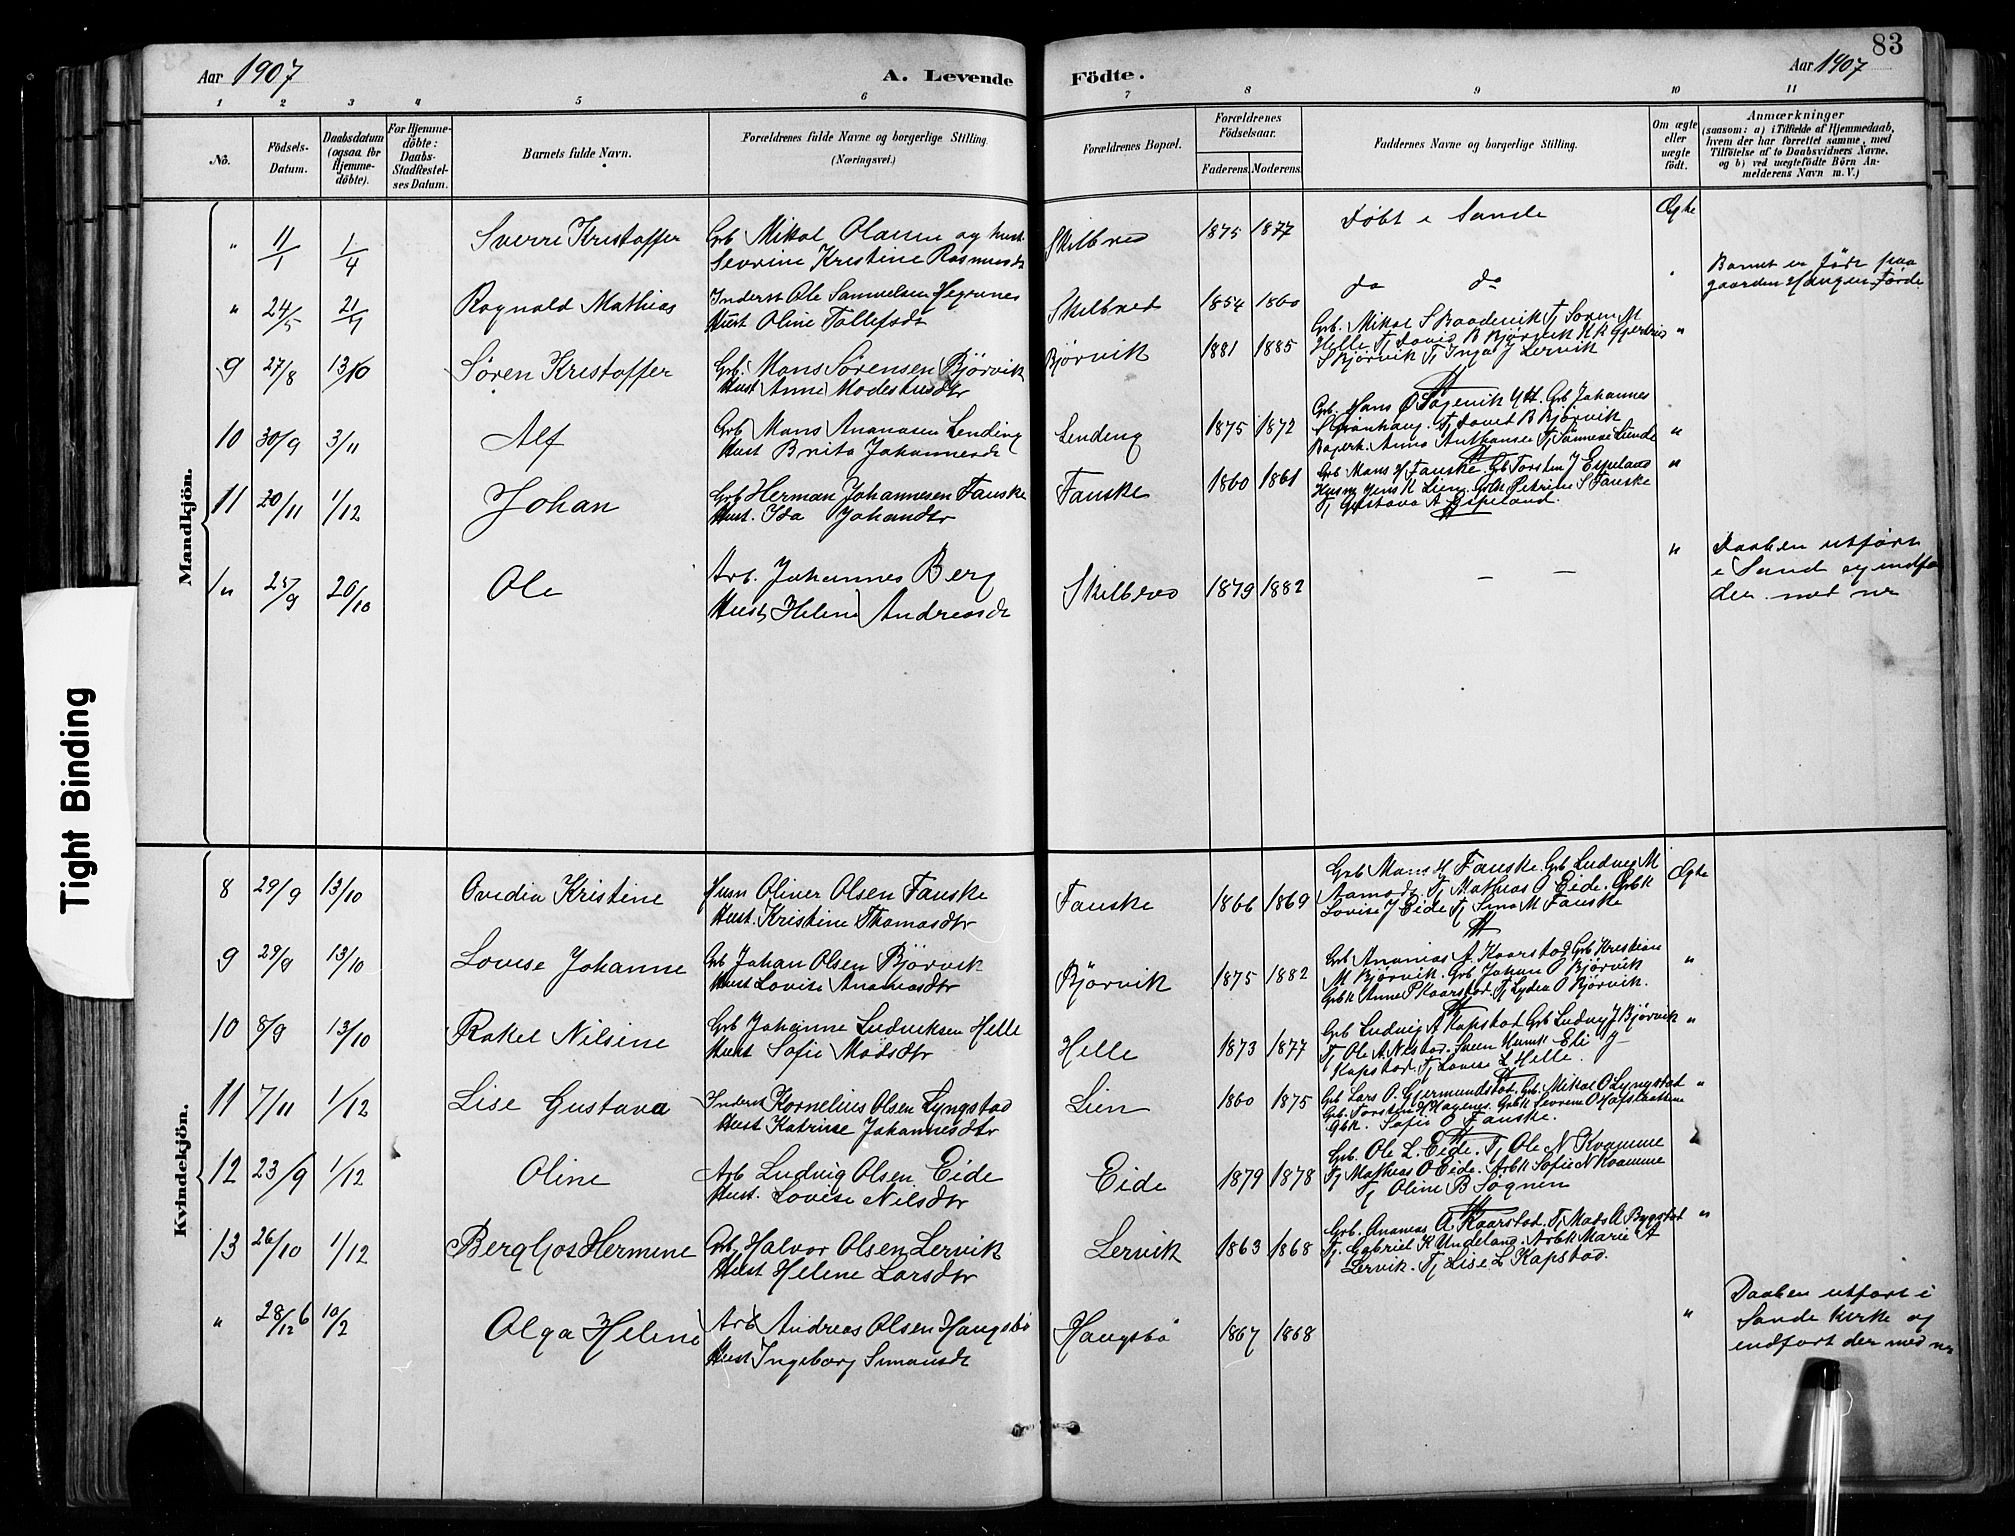 83
Aar 1907
A. Levende Födte.
Aar 1907
1 2 3 4 5 6 7 8 9 10 11
No.
Födsels-
Datum.
Daabsdatum
(ogsaa for
Hjemme-
döbte).
For Hjemme-
döbte:
Daabs-
Stadfæstel-
ses Datum.
Barnets fulde Navn.
Forældrenes fulde Navne og borgerlige Stilling.
(Næringsvei.)
Forældrenes Bopæl.
Forældrenes
Födselsaar.
Faderens. Moderens.
Faddernes Navne og borgerlige Stilling.
Om ægte
eller
uægte
födt.
Anmærkninger
(saasom: a) i Tilfælde af Hjemmedaab,
hvem der har forrettet samme, med
Tilföielse af to Daabsvidners Navne.
og b) ved uægtefödte Börn An-
melderens Navn m. V.)
Mandkjön.
" 11/1 1/4 Sverre Kristoffer
Grb Mikal Olausen og hust.
Sevrine Kristine Rasmusdt
Skilbred 1875 1877 Døbt i Sande Ægte
" 24/5 21/7 Ragnald Mathias
Inderst Ole Samuelsen Hegrenes
Hust Oline Tollefsdt
Skilbred 1854 1860 do do "
Barnet er født paa
gaarden Haugen Førde
9 27/8 13/10 Søren Kristoffer
Grb. Mons Sørensen Bjørvik
Hust Anne Modestusdtr
Bjørvik 1881 1885
Helle Tj David B Bjørvik
S Bjørvik Tj Inga J Lervik "
10 30/9 3/11 Alf
Grb Mons Ananiasen Lending
Hust Brita Johannesdt
Lending 1875 1872
Grb. Hans O Søgenvik Grb Johannes
S Grønhaug. Tj David B Bjørvik
"
11 20/11 1/12 Johan
Grb Herman Johannesen Fauske
Hust. Ida Johandtr
Fauske 1860 1861
Grb Mons H Fauske. Grb Torsten J Espeland
Husm Jens K Lien. Grbk Petrine S Fauske
Tj Gustava A Espeland. "
25/9 20/10 Ole
Arb. Johannes Berg
Hust Helene Andreasdt
Skilbred 1879 1882 — — "
Daaben utført
i Sand og indfø
der med nr
Kvindekjön.
8 29/9 13/10 Ovidia Kristine
Husm Oliver Olsen Fauske
Hust. Kristine Thomasdtr
Fauske 1866 1869
Grb Mons H Fauske. Grb Ludvig M
Aamodt Tj Mathias O Eide. Grbk
Lovise J Eide Tj Sina M Fauske
Ægte
9 29/9 13/10 Lovise Johanne
Grb Johan Olsen Bjørvik
Hust Lovise Ananiasdtr
Bjørvik 1875 1882
Grb Ananias A. Kaarstad Grb Kristian
M Bjørvik. Grb Johan O Bjørvik
Grbk Anne P Kaarstad. Tj Lydia O Bjørvik.
"
10 8/9 13/10 Rakel Nilsine
Grb Johanne Ludviksen Helle
Hust Sofie Madsdtr
Helle 1873 1877
Grb Ludvig A Kapstad Grb Ludvig J Bjørvik
Tj Ole A. Nistad. Eli J
Kapstad. Tj Lovise L Helle. "
11 7/11 1/12 Lise Gustava
Inderst Kornelius Olsen Lyngstad
Hust Katrine Johannesdtr
Lien 1860 1875
Grb Lars O. Gjermundstad. Grb. Mikal O Lyngstad
Gbk. Sofie O Fauske. "
12 23/9 1/12 Oline
Arb Ludvig Olsen Eide
Hust. Lovise Nilsdtr
Eide 1879 1878
Grb. Ole L. Eide. Tj Ole N Kvamme
Tj Mathias O Eide. Arbk Sofie N Kvamme
Tj Oline B Søgnen "
13 26/10 1/12 Bergljot Hermine
Grb. Halvor Olsen Lervik
Hust Helene Larsdtr
Lervik 1863 1868
Grb. Ananias A Kaarstad. Tj Mads A Bygstad
Tj. Gabriel K Undeland. Arbk Marie A
Lervik. Tj Lise L Kapstad. "
" 28/12 6 10/2 Olga Helene
Arb Andreas Olsen Haugsbø
Hust Ingeborg Simonsdt
Haugsbø 1867 1868 "
Daaben utført i
Sande Kirke og
indført der med nr
Tight Binding